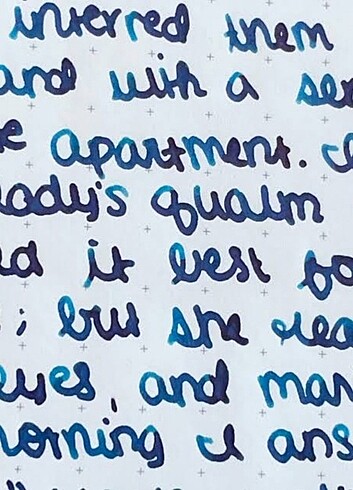 interred them
and with a se
e apartment. I
lady's qualm
d it best fo
; but she rea
eyes, and man
morning I ans